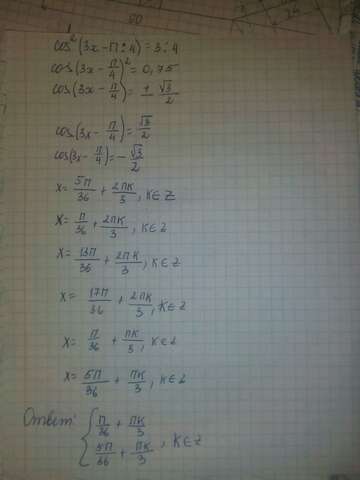 cos²(3x - π : 4) = 3 : 4
cos(3x - π/4)² = 0,75
cos(3x - π/4) = ± √3/2
cos(3x - π/4) = √3/2
cos(3x - π/4) = - √3/2
x = 5π/36 + 2πк/3, к∈Z
x = π/36 + 2πк/3, к∈Z
x = 13π/36 + 2πк/3, к∈Z
x = 17π/36 + 2πк/3, к∈Z
x = π/36 + πк/3, к∈Z
x = 5π/36 + πк/3, к∈Z
Ответ: { π/36 + πк/3
5π/36 + πк/3, к∈Z